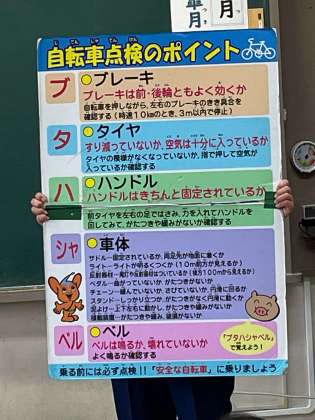 皐月
月
自転車点検のポイント
じてんしゃてんけん
ブ
●ブレーキ
ブレーキは前・後輪ともよく効くか
自転車を押しながら、左右のブレーキのきき具合を
確認する(時速10㎞のとき、3m以内で停止)
タ
●タイヤ
すり減っていないか、空気は十分に入っているか
タイヤの模様がなくなっていないか、指で押して空気が
入っているか確認する
ハ
●ハンドル
ハンドルはきちんと固定されているか
前タイヤを左右の足ではさみ、力を入れてハンドルを
回してみて、がたつきやゆるみがないか確認する
シャ
●車体
サドル…固定されているか、両足先が地面に着くか
ライト…ライトが明るくつくか(10m前方が見えるか)
反射器材…
ペダル…曲がっていないか、がたつきがないか
チェーン…緩んでいないか、さびていないか、円滑に回るか
スタンド…しっかり立つか、がたつきがなく円滑に動くか
がたつきや緩みがないか
がたつきや緩み、破損がないか
ベル
●ベル
ベルは鳴るか、壊れていないか
よく鳴るか確認する
「ブタハシャベル」
で覚えよう!
乗る前には必ず点検!!「安全な自転車」に乗りましょう